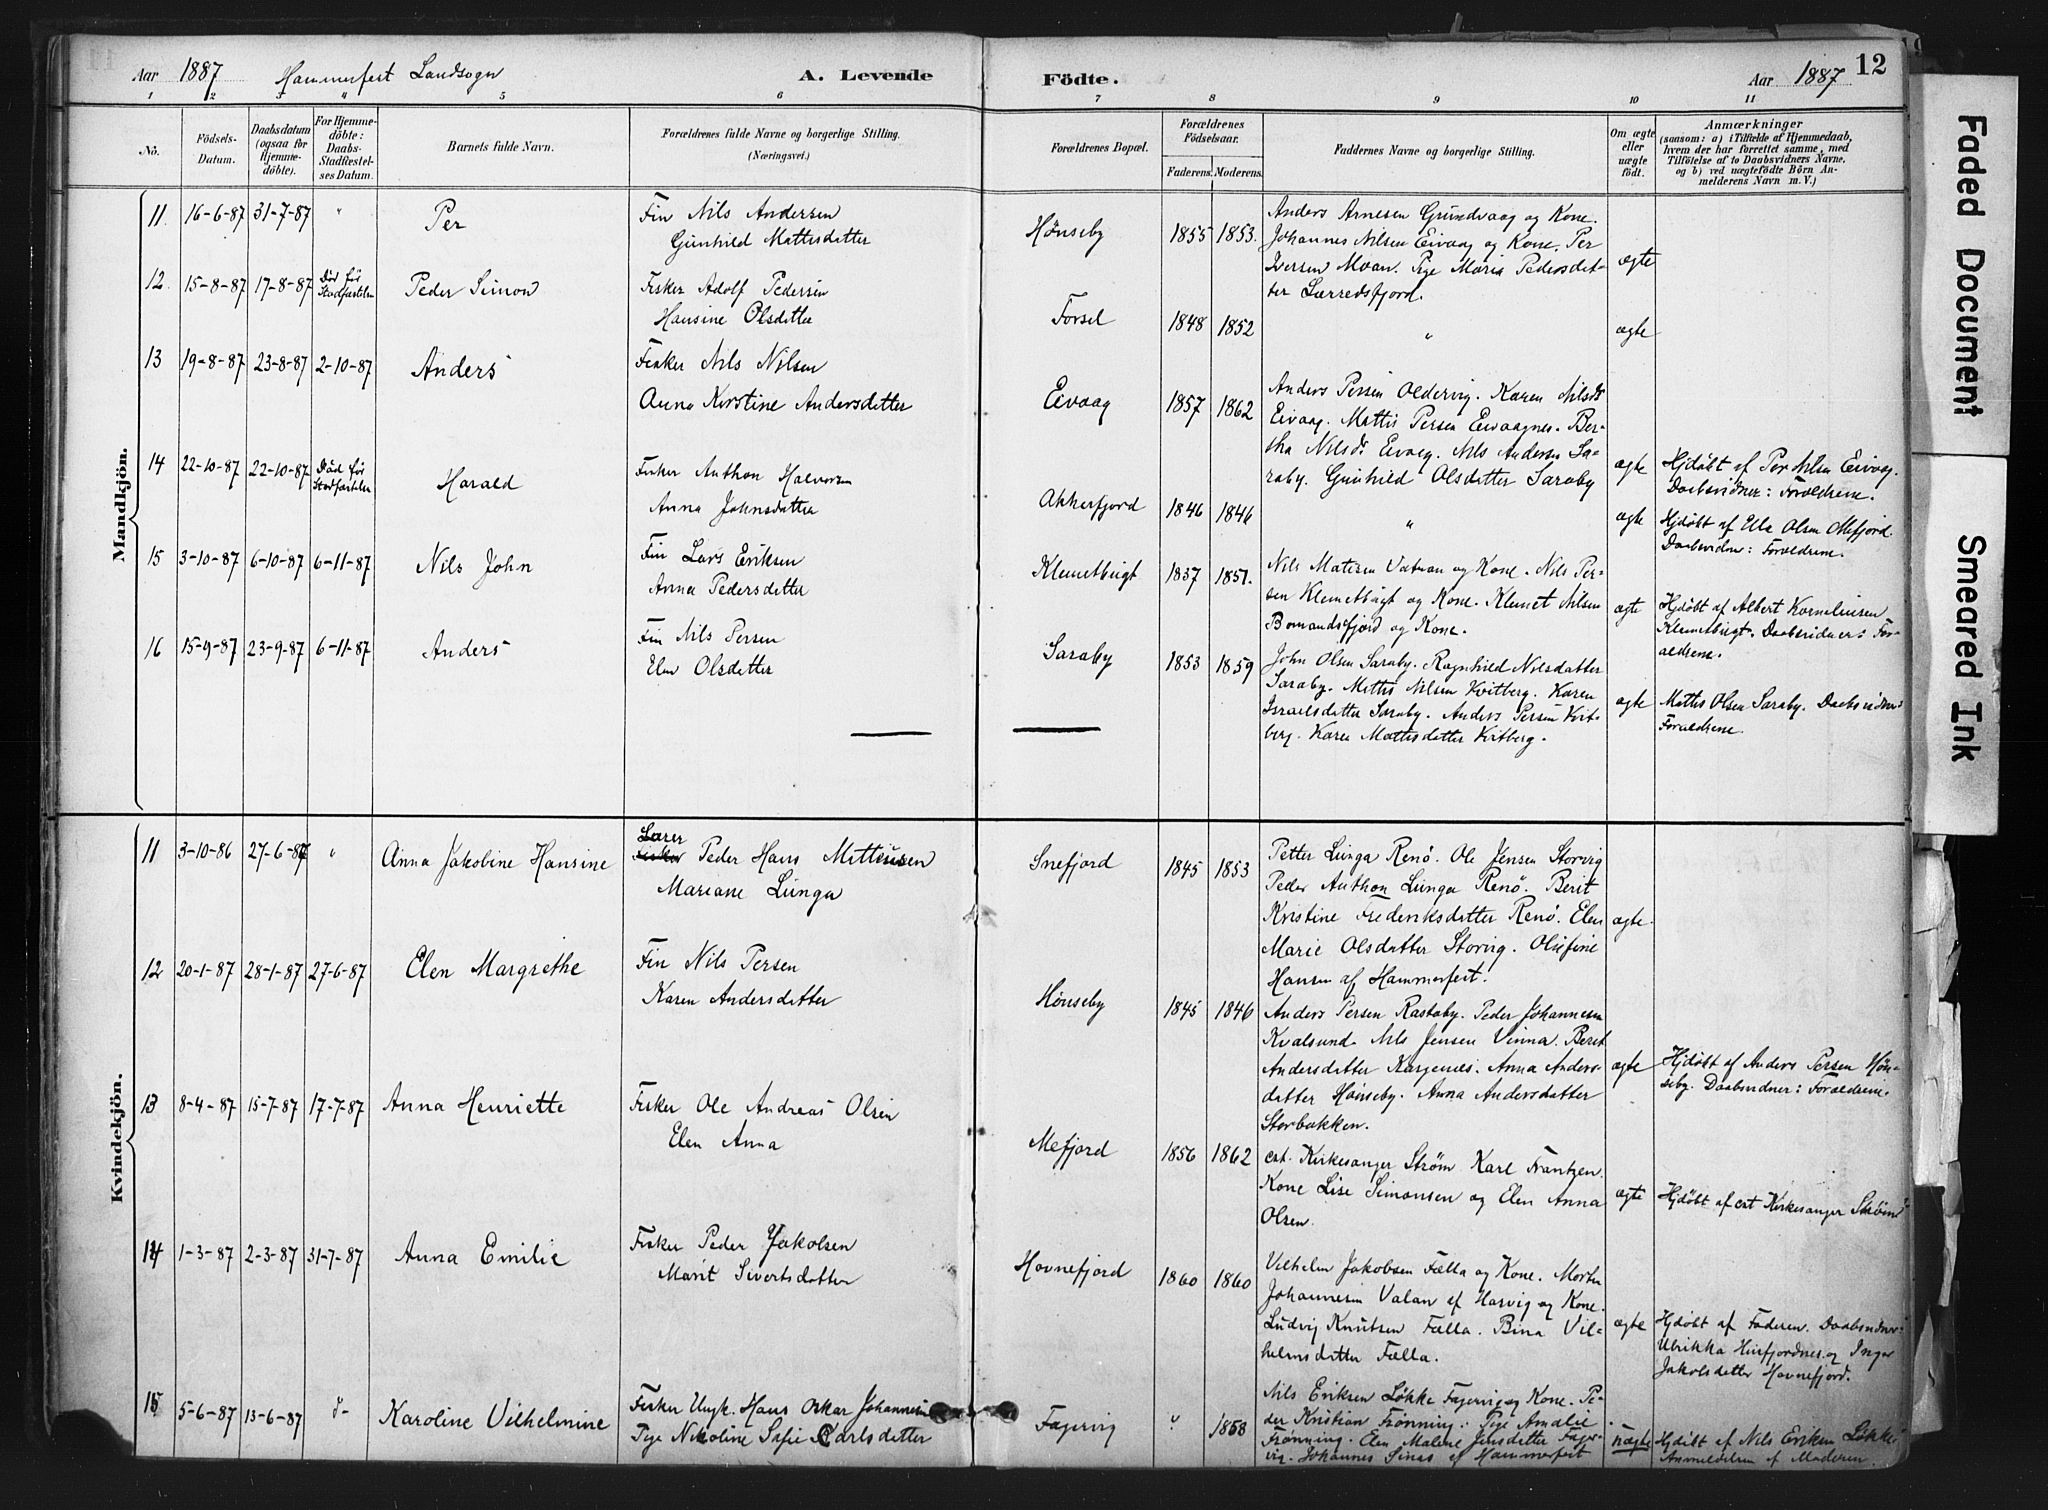 Aar 1887 Hammerfest Landsogn A. Levende Födte. Aar 1887 12
1 2 3 4 5 6 7 8 9 10 11
No. Födsels-Datum. Daabsdatum (ogsaa for Hjemmedöbte). For Hjemmedöbte: Daabs-Stadfæstelses Datum. Barnets fulde Navn. Forældrenes fulde Navne og borgerlige Stilling. (Næringsvei.) Forældrenes Bopæl. Forældrenes Födselsaar. Faderens. Moderens. Faddernes Navne og borgerlige Stilling. Om ægte eller uægte födt. Anmærkninger (saasom: a) i Tilfælde af Hjemmedaab, hvem der har forrettet samme, med Tilföielse af to Daabsvidners Navne, og b) ved uægtefödte Börn Anmelderens Navn m. V.)
Mandkjön.
11 16-6-87 31-7-87 " Per
Fin Nils Andersen
Gunhild Mattisdatter
Hønseby 1855 1853.
Anders Arnesen Grundvaag og Kone.
Johannes Nilsen Eivaag og Kone. Per
Iversen Moan. Pige Maria Pedersdat-
ter Lærredsfjord.
ægte
12 15-8-87 17-8-87 Død før Stadfæstelse Peder Simon
Fisker Adolf Pedersen
Hansine Olsdatter
Forsøl 1848 1852 " ægte
13 19-8-87 23-8-87 2-10-87 Anders
Fisker Nils Nilsen
Anna Kirstine Andersdatter
Eivaag 1857 1862
Anders Persen Oldervig. Karen Nilsdr
Eivaag. Mattis Persen Eivaagnes. Ber-
tha Nilsdr Eivaag. Nils Andersen Sa-
raby. Gunhild Olsdatter Saraby
ægte
Hjdøbt af Per Nilsen Eivaag.
Daabsvidner: Forældrene.
14 22-10-87 22-10-87 Død før Stadfæstelse Harald
Fisker Anthon Halvorsen
Anna Johnsdatter
Akkerfjord 1846 1846 " ægte
Hjdøbt af Olsen Mefjord.
Daabsvidner: Forældrene.
15 3-10-87 6-10-87 6-11-87 Nils John
Fin Lars Eriksen
Anna Pedersdatter
Klemetbugt 1837 1851.
Nils Matisen Vatnan og Kone. Nils Per-
sen Klemetbugt og Kone. Klemet Nilsen
Bomandsfjord og Kone.
ægte
Hjdøbt af Albert Korneliusen
Klemetbugt. Daabsvidner: For-
ældrene.
16 15-9-87 23-9-87 6-11-87 Anders
Fin Nils Persen
Elen Olsdatter
Saraby 1853 1859
John Olsen Saraby. Ragnhild Nilsdatter
Saraby. Mattis Nilsen Kvitberg. Karen
Israelsdatter Saraby. Anders Persen Kvit-
berg. Karen Mattisdatter Kvitberg.
ægte
Mattis Olsen Saraby. Daabsvidner:
Forældrene.
Kvindekjön.
11 3-10-86 27-6-87 " Anna Jakobine Hansine
Lærer
Fisker Peder Hans Mathisen
Mariane Lunga
Snefjord 1845 1853
Petter Lunga Renø. Ole Jensen Storvig
Peder Anthon Lunga Renø. Berit
Kristine Frederiksdatter Renø. Elen
Marie Olsdatter Storvig. Olufine
Hansen af Hammerfest.
ægte.
12 20-1-87 28-1-87 27-6-87 Elen Margrethe
Fin Nils Persen
Karen Andersdatter
Hønseby 1845 1846
Anders Persen Rastaby. Peder Johannesen
Kvalsund. Nils Jensen Vinna. Beret
Andersdatter Kargenes. Anna Anders-
datter Hønseby. Anna Andersdatter
Storbakken.
ægte
Hjdøbt af Anders Persen Høn-
seby. Daabsvidner: Forældrene.
13 8-4-87 15-7-87 17-7-87 Anna Henriette
Fisker Ole Andreas Olsen
Elen Anna
Mefjord 1856 1862
cst. Kirkesanger Strøm. Karl Frantzen.
Kone Lise Simonsen og Elen Anna
Olsen.
ægte
Hjdøbt af cst Kirkesanger Strøm
14 1-3-87 2-3-87 31-7-87 Anna Emilie
Fisker Peder Jakobsen
Marit Sivertsdatter
Havnefjord 1860 1860
Vilhelm Jakobsen Fælla og Kone. Morten
Johannesen Valan af Harvig og Kone.
Ludvig Knutsen Fælla. Bina Vil-
helmsdatter Fælla.
ægte
Hjdøbt af Faderen. Daabsvidner:
Ulrikka og Inger
Jakobsdatter Havnefjord.
15 5-6-87 13-6-87 Karoline Vilhelmine
Fisker Ungk. Hans Oskar Johannesen
Pige Nikoline Sofie Carlsdatter
Fagervig " 1868
Nils Eriksen Løkke Fagervig og Kone. Pe-
der Kristian Frønning. Pige Amalie
Frønning. Elen Malene Jensdatter Fager-
vig. Johannes Sinas af Hammerfest
uægte
Hjdøbt af Nils Eriksen Løkke
Anmeldelsen af Moderen.
Faded Document
Smeared Ink